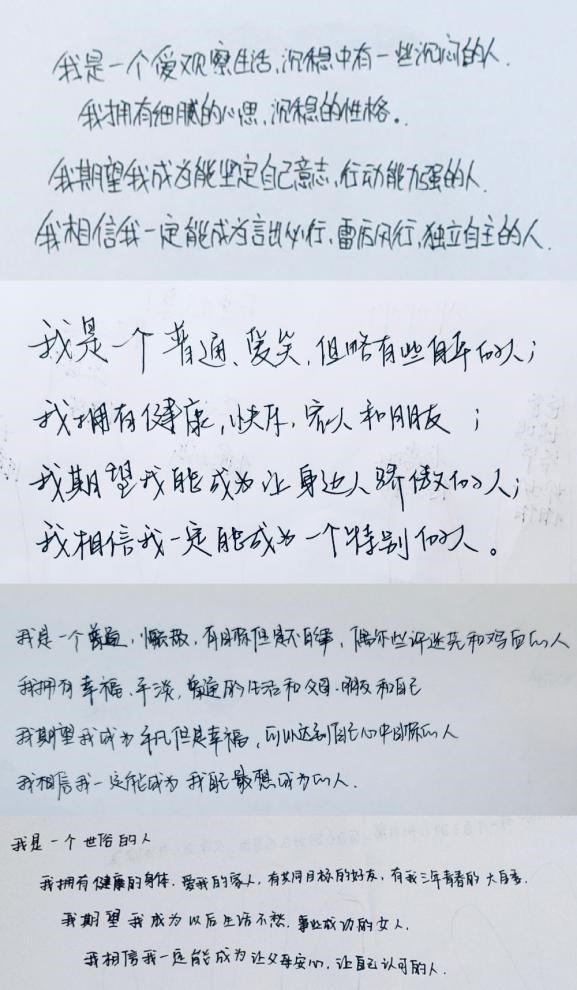 我是一个爱观察生活,沉稳中有一些沉闷的人.
我拥有细腻的心思,沉稳的性格。
我期望我成为能坚定自己意志,行动能力强的人.
我相信我一定能成为言出必行,雷厉风行,独立自主的人.
我是一个普通、爱笑,但略有些自卑的人;
我拥有健康,快乐,家人和朋友;
我期望我能成为让身边人骄傲的人;
我相信我一定能成为一个特别的人。
我是一个普通,懒散,有目标但是不自律,偶尔些许迷茫和鸡血的人
我拥有幸福、平淡,普通的生活和父母.朋友和自己
我期望我成为平凡但是幸福,可以达到自己心中目标的人
我相信我一定能成为我自己最想成为的人.
我是一个世俗的人
我拥有健康的身体.爱我的家人,有共同目标的好友,有我三年青春的大自考.
我期望我成为以后生活不愁,事业成功的女人.
我相信我一定能成为让父母安心,让自己认可的人.